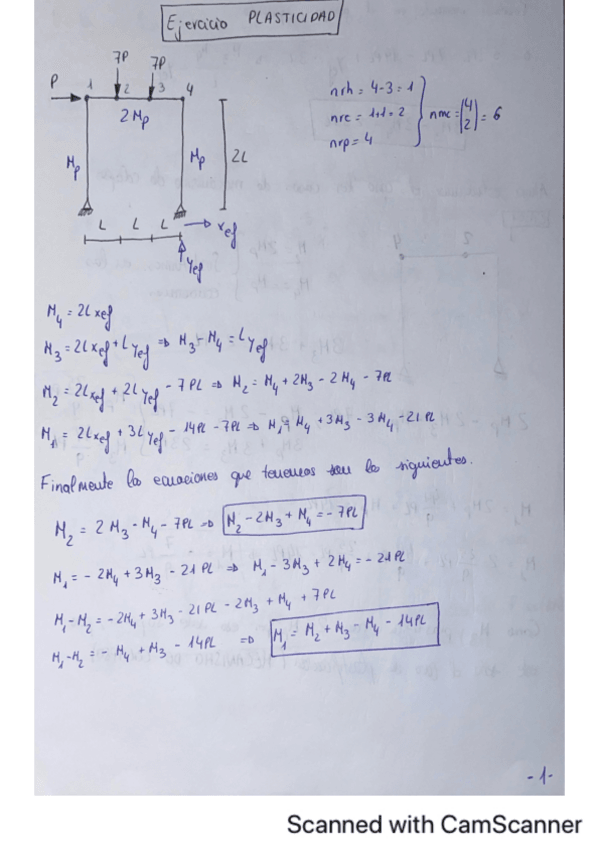 Ejercicio PLASTICIDAD
7P 7P
P 1 2 3 4
2 Mp
Mp Mp 2L
L L L → Xef
Yef
nrh = 4-3 = 1
nre = 1+1 = 2
nrp = 4
nmc = (4 2) = 6
M4 = 2L Xef
M3 = 2L Xef + L Yef ⇒ M3 + M4 = L Yef
M2 = 2L Xef + 2L Yef - 7PL ⇒ M2 = M4 + 2M3 - 2M4 - 7PL
M1 = 2L Xef + 3L Yef - 14PL - 7PL ⇒ M1 = M4 + 3M3 - 3M4 - 21PL
Finalmente las ecuaciones que tenemos son las siguientes.
M2 = 2M3 - M4 - 7PL ⇒ M2 - 2M3 + M4 = -7PL
M1 = -2M4 + 3M3 - 21PL ⇒ M1 - 3M3 + 2M4 = -21PL
M1 - M2 = -2M4 + 3M3 - 21PL - 2M3 + M4 + 7PL
M1 - M2 = - M4 + M3 - 14PL ⇒ M1 = M2 + M3 - M4 - 14PL
-1-
Scanned with CamScanner